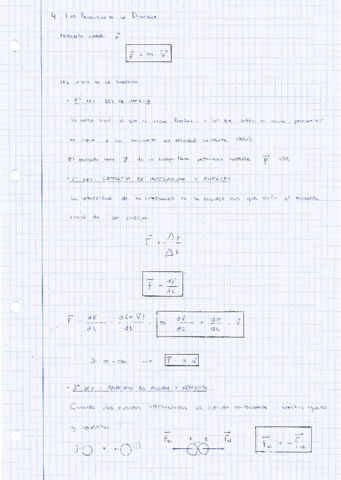 4. Los Principios de la Dinámica
Momento lineal p⃗
p⃗ = m · v⃗
Las leyes de la dinámica
• 1ª Ley: Ley de inercia
Un cuerpo sobre el que no actúan fuerzas, o las que actúan se anulan, permanecerá
en reposo o en movimiento con velocidad constante
El momento lineal p⃗ de un cuerpo libre permanece constante p⃗ = cte
• 2ª Ley: Concepto de interacción y fuerza
La intensidad de una interacción es la rapidez con que varía el momento
lineal de un cuerpo.
F⃗ = Δp⃗ / Δt
F⃗ = dp⃗ / dt
F⃗ = dp⃗/dt = d(m v⃗)/dt = m dv⃗/dt + dm/dt · v⃗
Si m = cte → F⃗ = m · a⃗
• 3ª Ley: Principio de acción y reacción
Cuando dos cuerpos interaccionan se ejercen mutuamente fuerzas iguales
y opuestas
F⃗₁₂ 1 2 F⃗₂₁ F⃗₁₂ = - F⃗₂₁